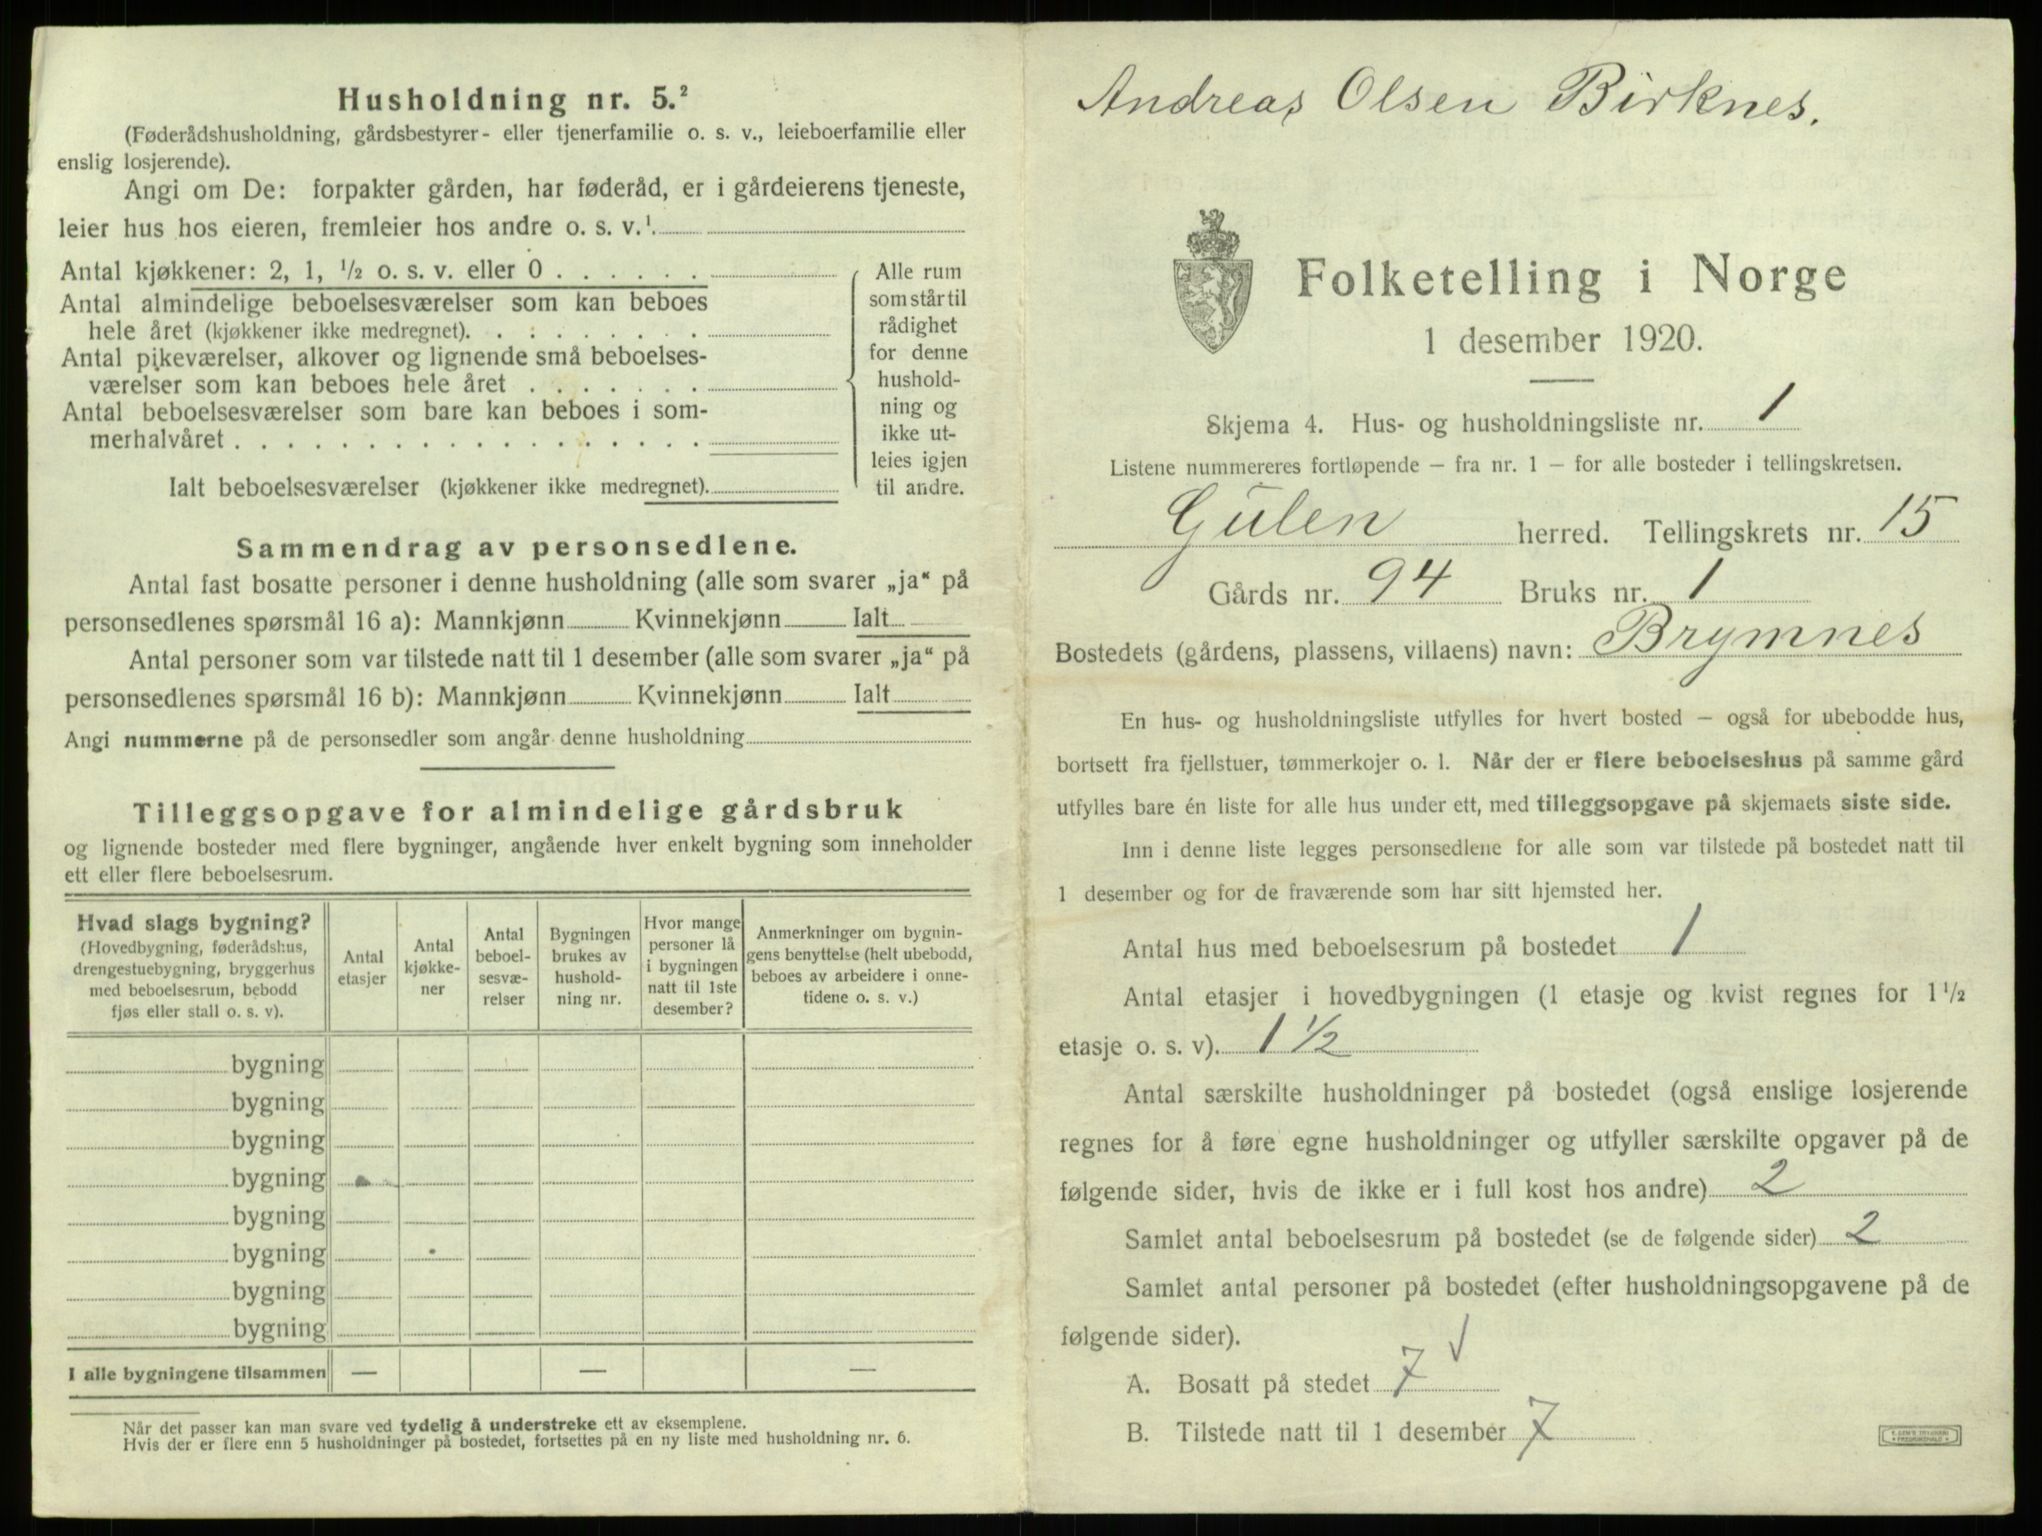 Husholdning nr. 5.²
(Føderådshusholdning, gårdsbestyrer- eller tjenerfamilie o. s. v., leieboerfamilie eller
enslig losjerende).
Angi om De: forpakter gården, har føderåd, er i gårdeierens tjeneste,
leier hus hos eieren, fremleier hos andre o. s. v.¹
Antal kjøkkener: 2, 1, ½ o. s. v. eller 0 . . . . . .
Antal almindelige beboelsesværelser som kan beboes
hele året (kjøkkener ikke medregnet). . . . . . . .
Antal pikeværelser, alkover og lignende små beboelses-
værelser som kan beboes hele året . . . . . . .
Antal beboelsesværelser som bare kan beboes i som-
merhalvåret . . . . . . . . . . . . . . . . . .
Ialt beboelsesværelser (kjøkkener ikke medregnet).
Alle rum
som står til
rådighet
for denne
hushold-
ning og
ikke ut-
leies igjen
til andre.
Sammendrag av personsedlene.
Antal fast bosatte personer i denne husholdning (alle som svarer „ja“ på
personsedlenes spørsmål 16 a): Mannkjønn Kvinnekjønn Ialt
Antal personer som var tilstede natt til 1 desember (alle som svarer „ja“ på
personsedlenes spørsmål 16 b): Mannkjønn Kvinnekjønn Ialt
Angi nummerne på de personsedler som angår denne husholdning
Tilleggsopgave for almindelige gårdsbruk
og lignende bosteder med flere bygninger, angående hver enkelt bygning som inneholder
ett eller flere beboelsesrum.
Hvad slags bygning?
(Hovedbygning, føderådshus,
drengestuebygning, bryggerhus
med beboelsesrum, bebodd
fjøs eller stall o. s. v).
Antal
etasjer
Antal
kjøkke-
ner
Antal
beboel-
sesvæ-
relser
Bygningen
brukes av
hushold-
ning nr.
Hvor mange
personer lå
i bygningen
natt til 1ste
desember?
Anmerkninger om bygnin-
gens benyttelse (helt ubebodd,
beboes av arbeidere i onne-
tidene o. s. v.)
bygning
bygning
bygning
bygning
bygning
bygning
bygning
bygning
I alle bygningene tilsammen — — —
Når det passer kan man svare ved tydelig å understreke ett av eksemplene.
Hvis der er flere enn 5 husholdninger på bostedet, fortsettes på en ny liste med husholdning nr. 6.
Andreas Olsen Birknes.
Folketelling i Norge
1 desember 1920.
Skjema 4. Hus- og husholdningsliste nr. 1
Listene nummereres fortløpende – fra nr. 1 – for alle bosteder i tellingskretsen.
Gulen herred. Tellingskrets nr. 15
Gårds nr. 94 Bruks nr. 1
Bostedets (gårdens, plassens, villaens) navn: Brymnes
En hus- og husholdningsliste utfylles for hvert bosted – også for ubebodde hus,
bortsett fra fjellstuer, tømmerkojer o. l. Når der er flere beboelseshus på samme gård
utfylles bare én liste for alle hus under ett, med tilleggsopgave på skjemaets siste side.
Inn i denne liste legges personsedlene for alle som var tilstede på bostedet natt til
1 desember og for de fraværende som har sitt hjemsted her.
Antal hus med beboelsesrum på bostedet 1
Antal etasjer i hovedbygningen (1 etasje og kvist regnes for 1½
etasje o. s. v). 1 ½
Antal særskilte husholdninger på bostedet (også enslige losjerende
regnes for å føre egne husholdninger og utfyller særskilte opgaver på de
følgende sider, hvis de ikke er i full kost hos andre) 2
Samlet antal beboelsesrum på bostedet (se de følgende sider) 2
Samlet antal personer på bostedet (efter husholdningsopgavene på de
følgende sider).
A. Bosatt på stedet 7 √
B. Tilstede natt til 1 desember 7